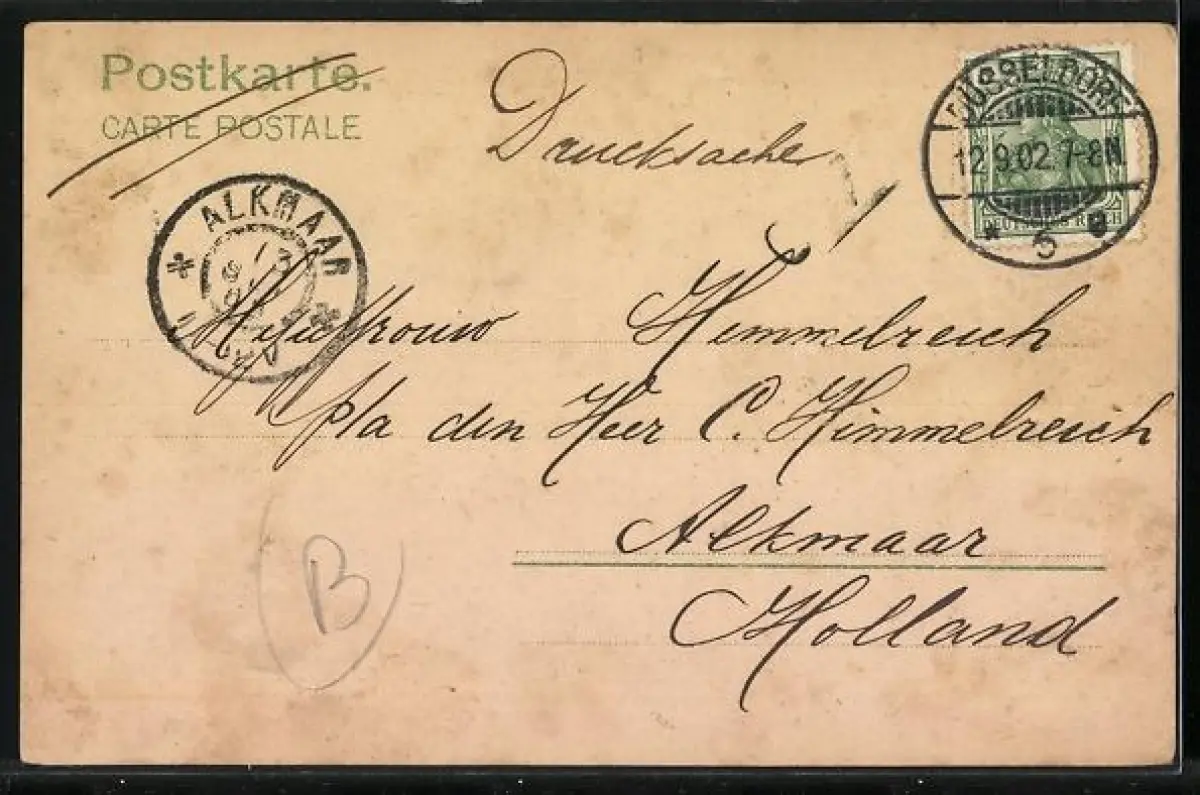 Postkarte.
CARTE POSTALE
Drucksache
DÜSSELDORF
12.9.02.7-8N.
* 5
DEUTSCHES REICH
ALKMAAR
Mejuffrouw Hemmelreich
p/a den Heer C. Himmelreich
Alkmaar
Holland
B